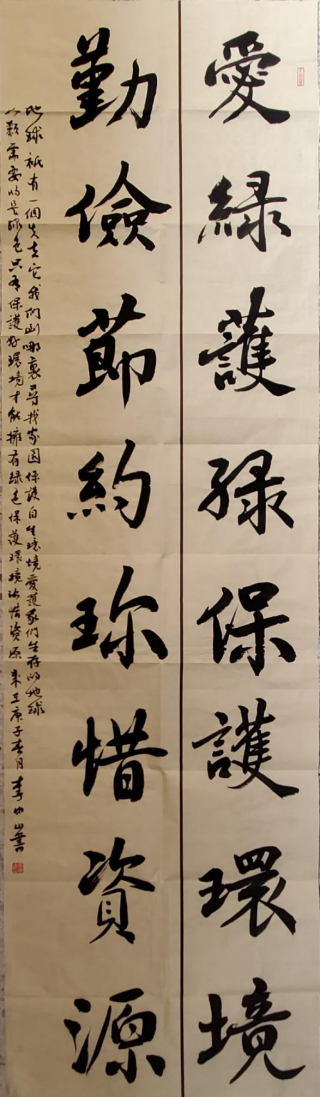 愛緑護緑保護環境
勤儉節約珎惜資源
地球祇有一個失去它我們到哪裏尋找家園保護自生環境愛護我們生存的地球
人類需要的是綠色只有保護好環境才能擁有緑色保護環境珍惜資源 庚子春月李 山書